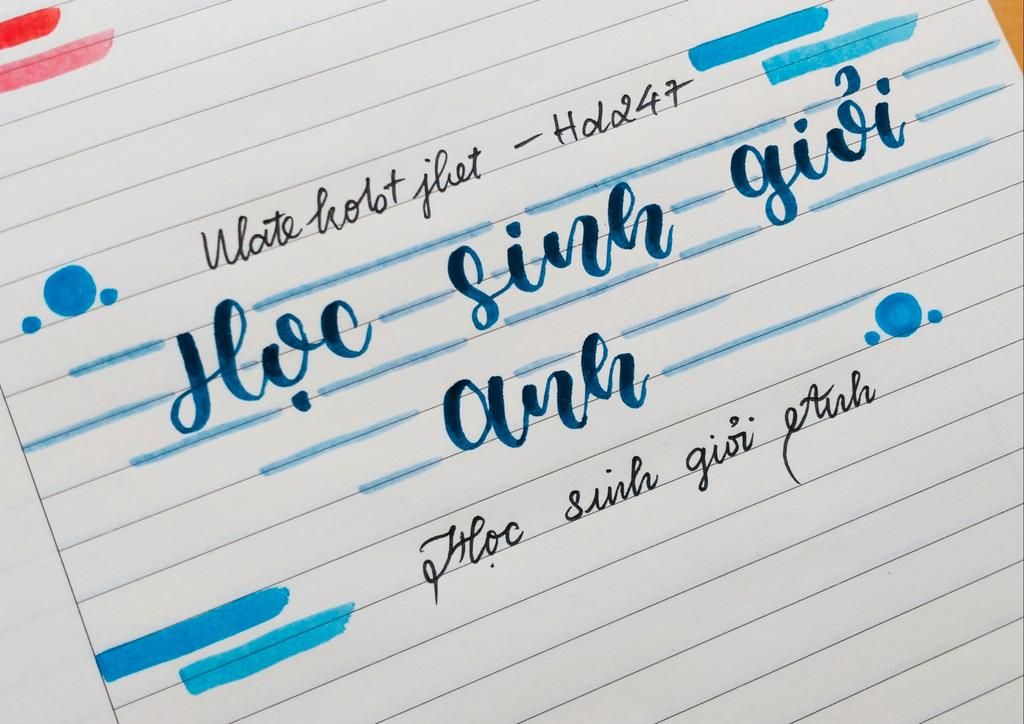 Wate kobt jhet - Hdz247
Học sinh giỏi
anh
Học sinh giỏi Anh